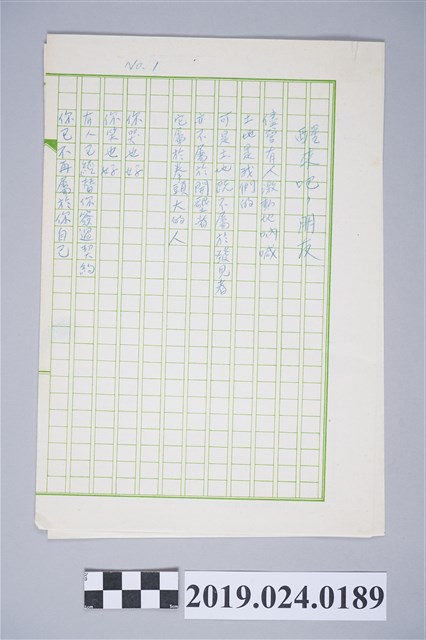 No. 1
醒來吧,朋友
儘管有人激動地吶喊
土地是我們的
可是土地既不屬於發見者
亦不屬於開墾者
它屬於拳頭大的人
你哭也好
你笑也好
有人已經替你簽過契約
你已不再屬於你自己
2019.024.0189